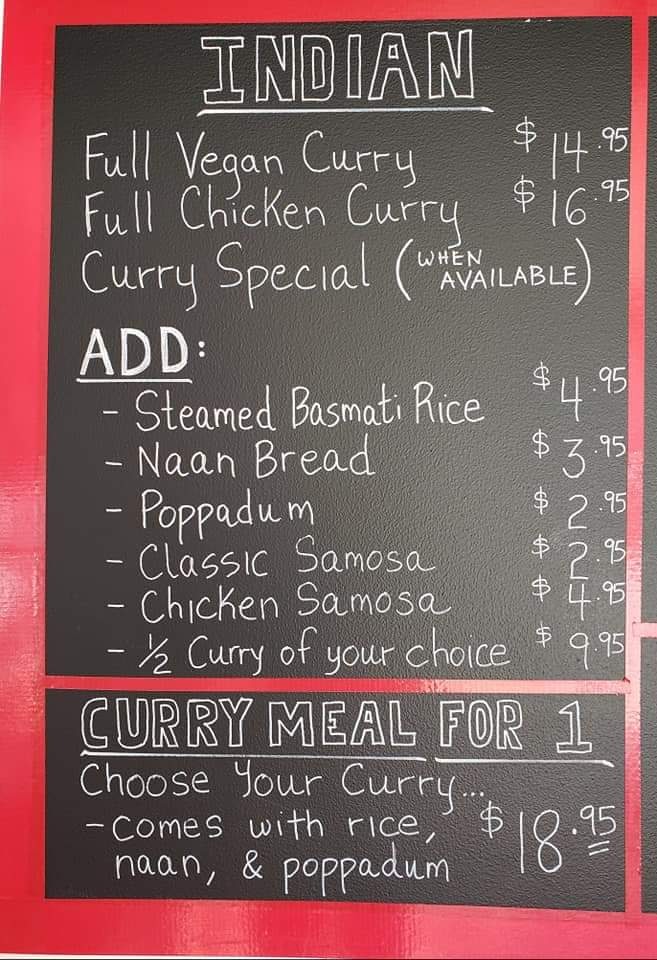 INDIAN
Full Vegan Curry $14.95
Full Chicken Curry $16.95
Curry Special (WHEN AVAILABLE)
ADD:
- Steamed Basmati Rice $4.95
- Naan Bread $3.95
- Poppadum $2.95
- Classic Samosa $2.95
- Chicken Samosa $4.95
- ½ Curry of your choice $9.95
CURRY MEAL FOR 1
Choose Your Curry...
- comes with rice, $18.95
naan, & poppadum